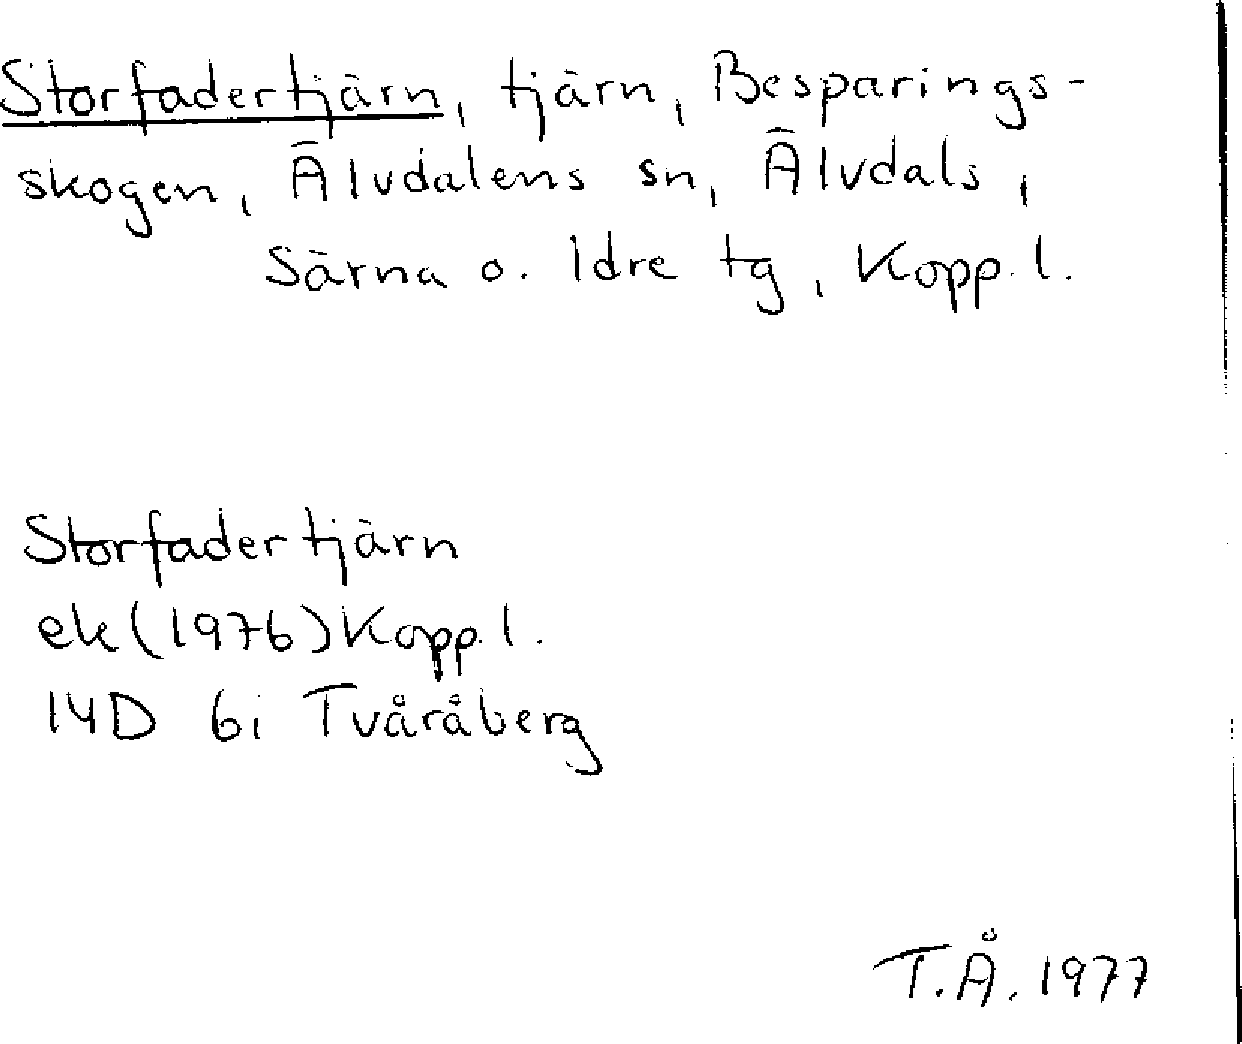 Storfadertjärn, tjärn, Besparings-
skogen, Älvdalens sn, Älvdals,
Särna o. Idre tg, Kopp. l.
Storfadertjärn
ek (1976) Kopp. l.
14D 6i Tvåråberg
T.Å. 1977